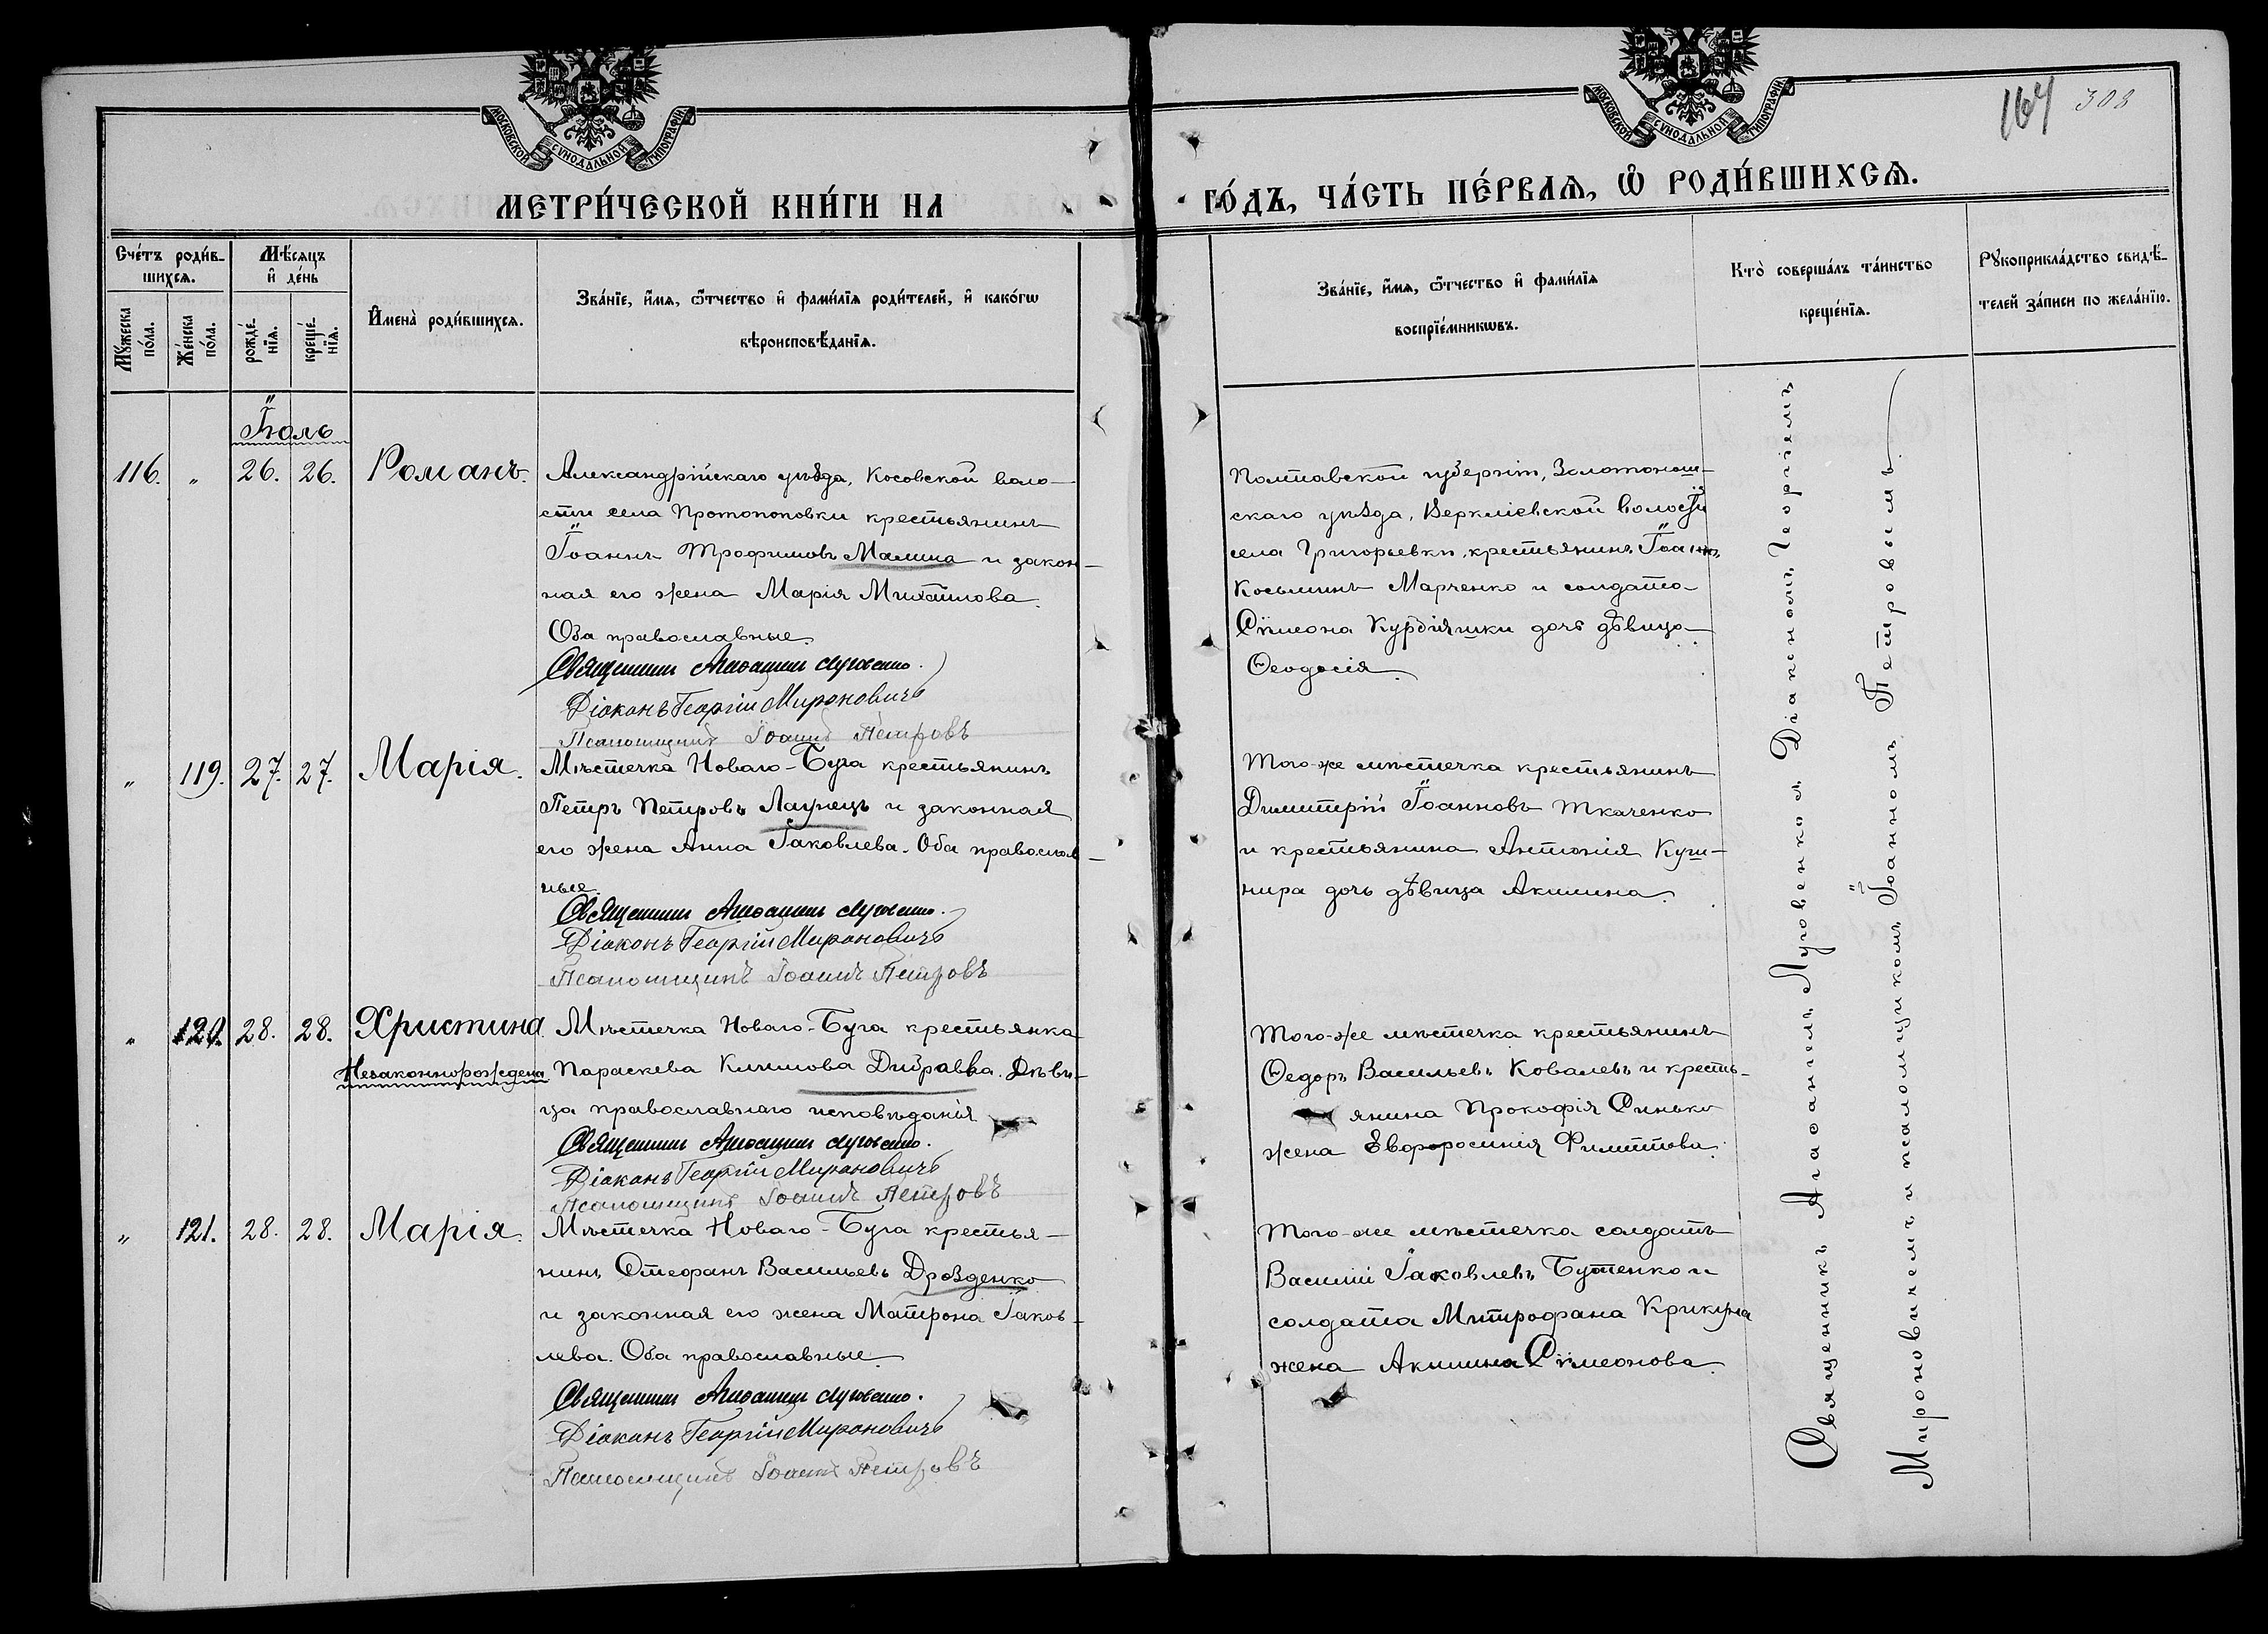 МОСКОВСКОЙ СѴНОДАЛЬНОЙ ТИПОГРАФІИ
МОСКОВСКОЙ СѴНОДАЛЬНОЙ ТИПОГРАФІИ
164 308
МЕТРИ́ЧЕСКОЙ КНИ́ГИ НА
ГО́ДЪ, ЧА́СТЬ ПЕ́РВАѦ, Ѽ РОДИ́ВШИХСѦ.
Сче́тъ роди́в-
шихсѧ.
Мꙋжеска
по́ла.
Же́нска
по́ла.
Мѣ́сѧцъ
и҆ де́нь
рожде́-
нїѧ.
креще́-
нїѧ.
И҆мена̀ роди́вшихсѧ.
Зва́нїе, и҆́мѧ, ѻ҆́тчество и҆ фами́лїѧ роди́телей, и҆ како́гѡ
вѣроисповѣ́данїѧ.
Зва́нїе, и҆́мѧ, ѻ҆́тчество и҆ фами́лїѧ
воспрїе́мникѡвъ.
Кто̀ соверша́лъ та́инство
креще́нїѧ.
Рꙋкоприкла́дство свидѣ́-
телей за́писи по жела́нїю.
Іюль
116. „ 26. 26. Романъ.
Александрійскаго уѣзда, Косовской воло-
сти села Протопоповки крестьянинъ
Іоаннъ Трофимовъ Малина и закон-
ная его жена Марія Михайлова.
Оба православные.
Священникъ Агаѳангелъ Луговенко.
Діаконъ Георгій Мироновичъ
Псаломщикъ Іоаннъ Петровъ
Полтавской губерніи, Золотонош-
скаго уѣзда, Веркліевской волости
села Григорьевки, крестьянинъ Іоаннъ
Косьминъ Марченко и солдата
Сѵмеона Курдіяшки дочь дѣвица
Ѳеодосія.
„ 119. 27. 27. Марія.
Мѣстечка Новаго-Буга крестьянинъ
Петръ Петровъ Лаунецъ и законная
его жена Анна Іаковлева. Оба православ-
ные.
Священникъ Агаѳангелъ Луговенко.
Діаконъ Георгій Мироновичъ
Псаломщикъ Іоаннъ Петровъ
Того-же мѣстечка крестьянинъ
Димитрій Іоанновъ Ткаченко
и крестьянина Антонія Куш-
нира дочь дѣвица Акилина.
„ 120. 28. 28. Христина
Незаконнорождена
Мѣстечка Новаго-Буга крестьянка
Параскева Климова Дибравва. Дѣви-
ца православнаго исповѣданія
Священникъ Агаѳангелъ Луговенко.
Діаконъ Георгій Мироновичъ
Псаломщикъ Іоаннъ Петровъ
Того-же мѣстечка крестьянинъ
Ѳедоръ Васильевъ Ковалевъ и кресть-
янина Прокофія Синько
жена Евфросинія Филиппова.
„ 121. 28. 28. Марія.
Мѣстечка Новаго-Буга крестья-
нинъ Стефанъ Васильевъ Дрозденко
и законная его жена Матрона Іаков-
лева. Оба православные.
Священникъ Агаѳангелъ Луговенко.
Діаконъ Георгій Мироновичъ
Псаломщикъ Іоаннъ Петровъ
Того-же мѣстечка солдатъ
Василій Іаковлевъ Бутенко и
солдата Митрофана Крикуна
жена Акилина Сѵмеонова.
Священникъ Агаѳангелъ Луговенко съ Діакономъ Георгіемъ
Мироновичемъ и псаломщикомъ Іоанномъ Петровымъ.